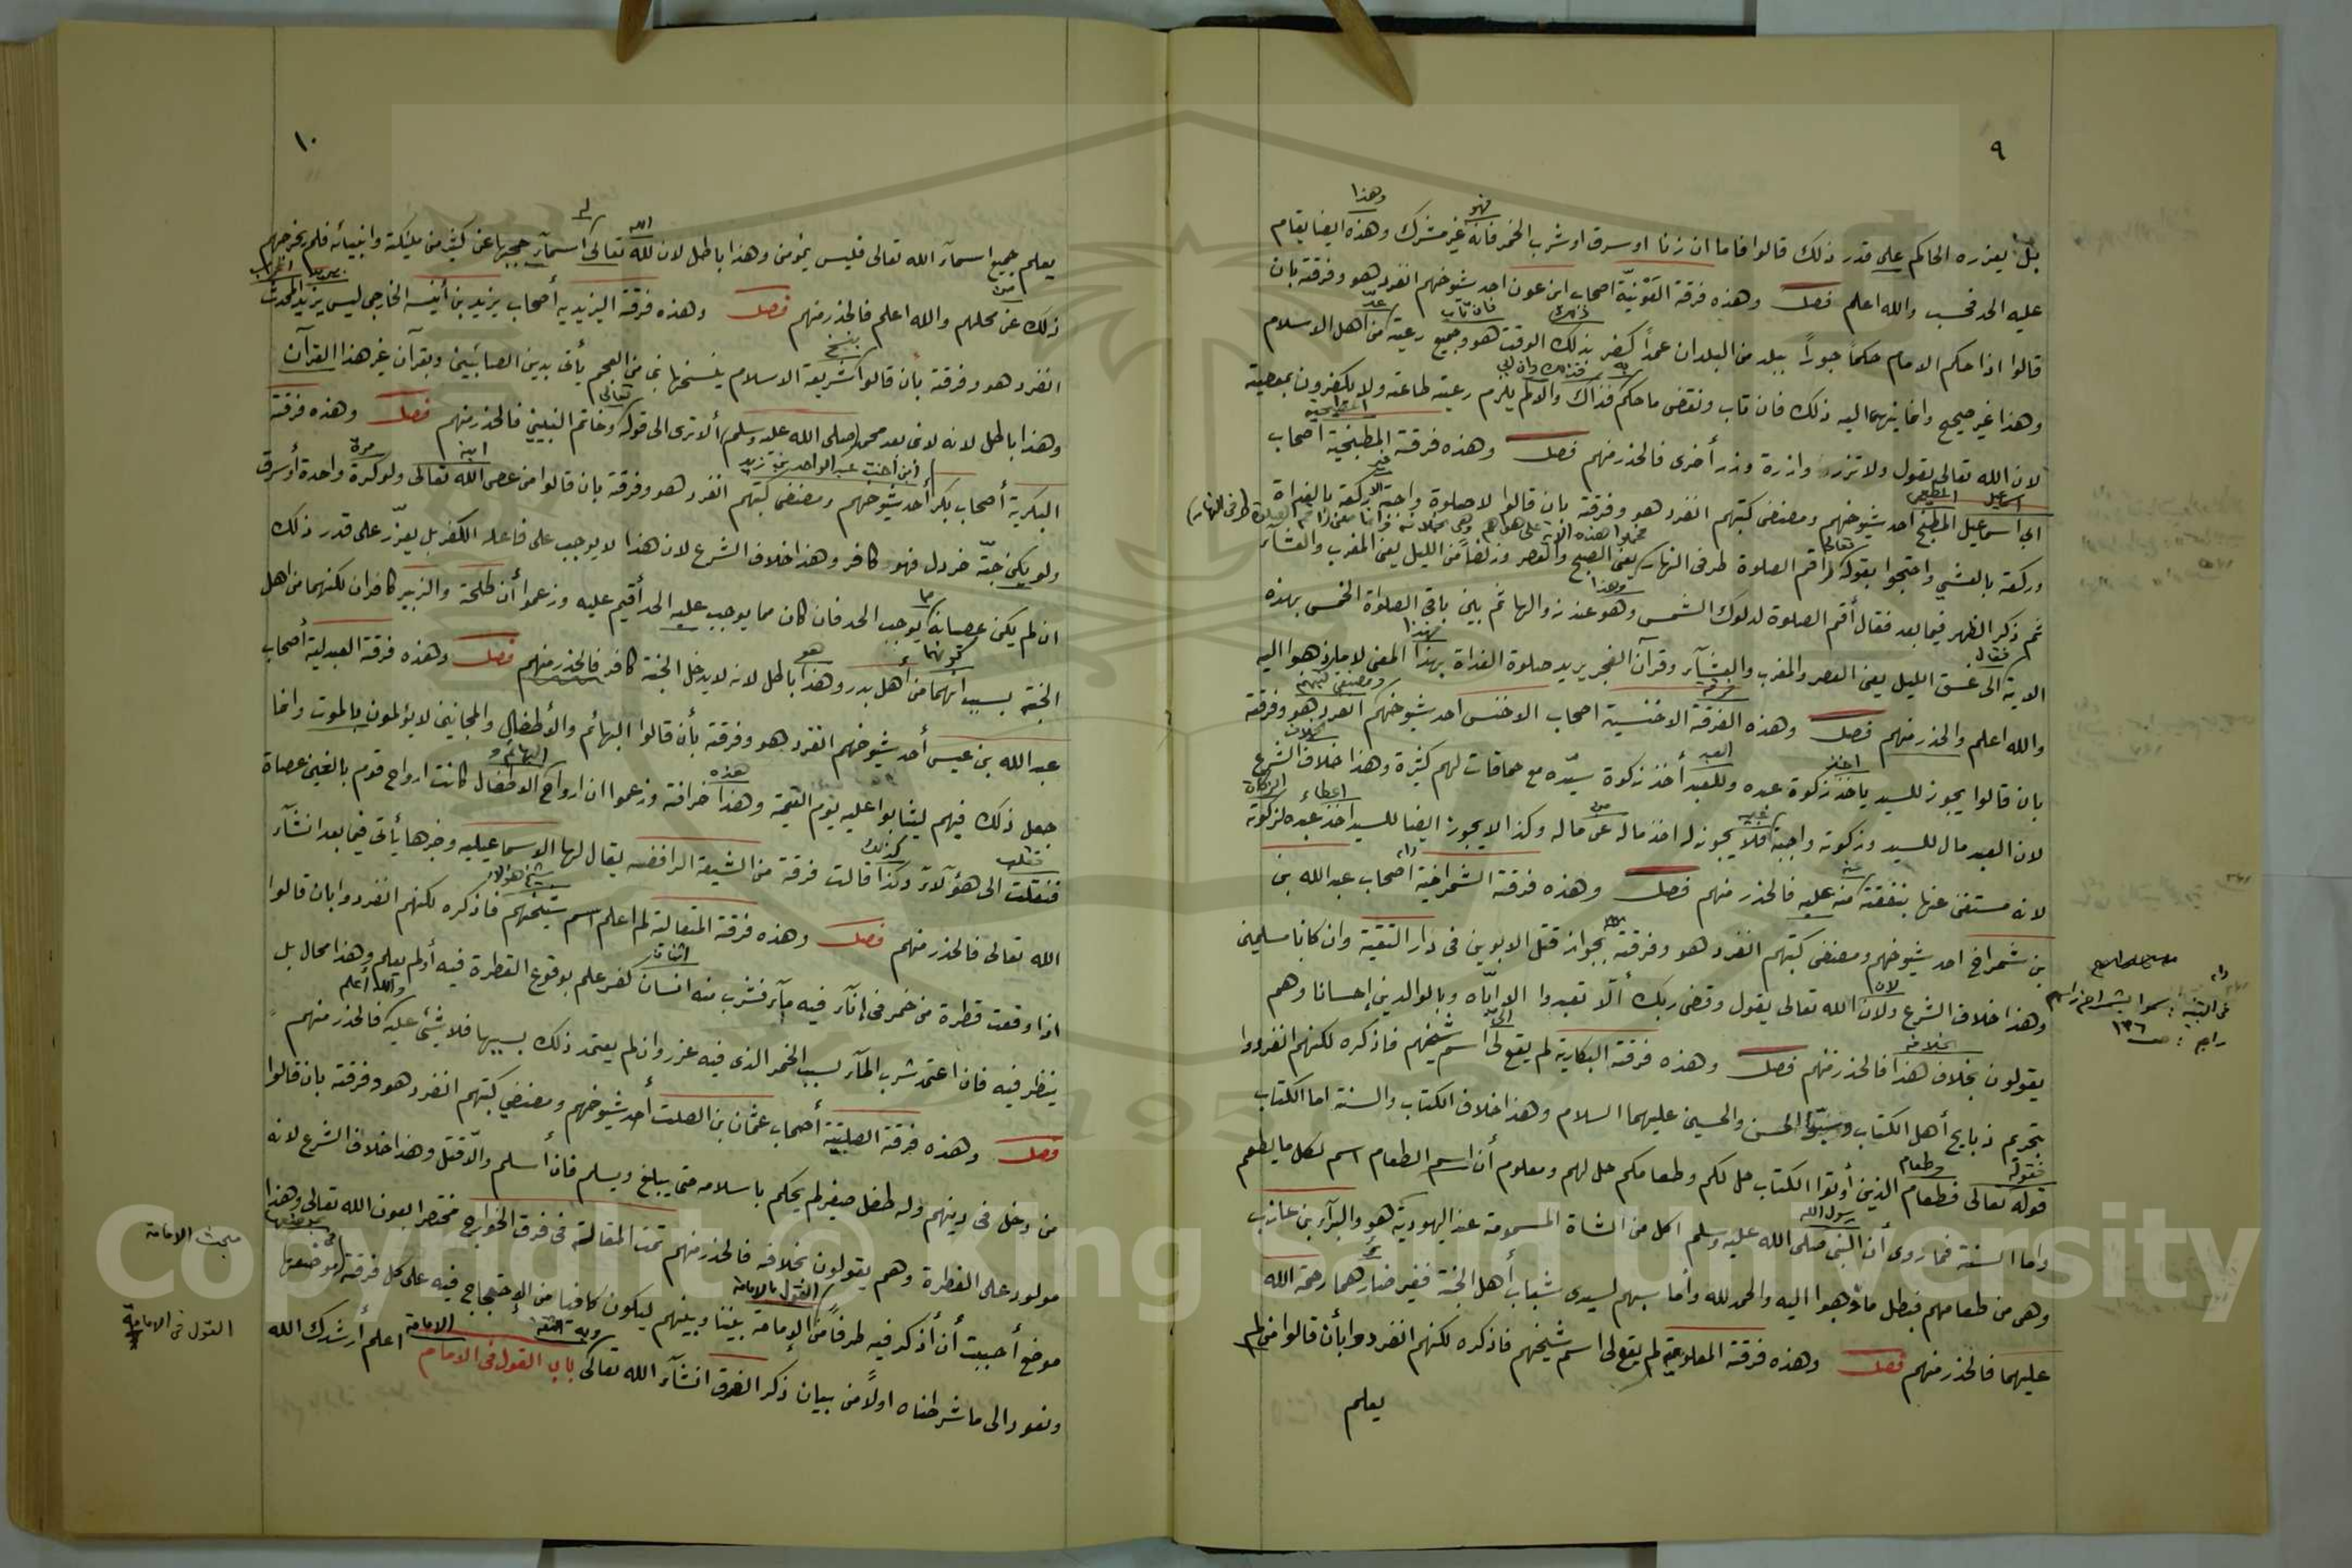 ٩
وهذا
فهو
بل يعزره الحاكم على قدر ذلك قالوا فاما ان زنا او سرق او شرب الخمر فانه غير مشرك وهذه ايضا يقام
عليه الحد فحسب والله اعلم فصل وهذه فرقة العَوْنيّة اصحاب ابن عون احد شيوخهم انفرد هو وفرقته بان
قالوا اذا حكم الامام حكماً جوراً ببلد من البلدان عمداً كفر بذلك الوقت هو وجميع رعيته من اهل الاسلام
وهذا غير صحيح وانما ينهى اليه ذلك فان تاب ونقض ما حكم فذاك والا لم يلزم رعيته طاعته ولا يكفرون بمعصيته
لان الله تعالى يقول ولا تزر وازرة وزر أخرى فالحذر منهم فصل وهذه فرقة المطبخية اصحاب
ابي اسماعيل المطبخ احد شيوخهم ومصنفى كتبهم انفرد هو وفرقته بان قالوا لا صلوة واجبة الا ركعة بالغداة
وركعة بالعشي واحتجوا بقوله اقم الصلوة طرفى النهار يعنى الصبح والعصر وزلفاً من الليل يعنى المغرب والعشآء
ثم ذكر الظهر فيما بعد فقال أقم الصلوة لدلوك الشمس وهو عند زوالها ثم بين باقى الصلواة الخمس بهذه
الاية الى غسق الليل يعنى العصر والمغرب والعشآء وقرآن الفجر يريد صلوة الغداة بهذا المعنى لا ما ذهبوا اليه
والله اعلم والحذر منهم فصل وهذه الفرقة الاخنسية اصحاب الاخنس احد شيوخهم انفرد هو وفرقته
بان قالوا يجوز للسيد ياخذ زكوة عبده وللعبد أخذ زكوة سيّده مع حماقات لهم كثيرة وهذا خلاف الشرع
لان العبد مال للسيد وزكوته واجبة فلا يجوز له اخذ ماله عن ماله وكذا لا يجوز ايضا للسيد اخذ عبده لزكوته
لانه مستغن عنها بنفقته منه عليه فالحذر منهم فصل وهذه فرقة الشمراخية اصحاب عبد الله بن
بن شمراخ احد شيوخهم ومصنفى كتبهم انفرد هو وفرقته بجواز قتل الابوين فى دار التقية وان كانا مسلمين
وهذا خلاف الشرع ولان الله تعالى يقول وقضى ربك ألّا تعبدوا الا ايّاه وبالوالدين إحسانا وهم
يقولون بخلاف هذا فالحذر منهم فصل وهذه فرقة البكارية لم يقع لى اسم شيخهم فاذكره لكنهم انفردوا
بتحريم ذبايح أهل الكتاب وسبّوا الحسن والحسين عليهما السلام وهذا خلاف الكتاب والسنة اما الكتاب
قوله تعالى فطعام الذين أوتوا الكتاب حل لكم وطعامكم حل لهم ومعلوم أن اسم الطعام اسم لكل ما يطعم
واما السنة فما روى أن النبي صلى الله عليه وسلم اكل من الشاة المسمومة عند اليهودية هو والبرآء بن عازب
وهى من طعامهم فبطل ما ذهبوا اليه والحمد لله وأما سبهم لسيدى شباب أهل الجنة فغير ضارهما رحمة الله
عليهما فالحذر منهم فصل وهذه فرقة المعلومية لم يقع لى اسم شيخهم فاذكره لكنهم انفردوا بأن قالوا من لم
يعلم
راجع : ص ١٣٦
١٠
يعلم جميع اسمآء الله تعالى فليس بمؤمن وهذا باطل لان لله تعالى اسمآء حجبها عن كثير من ملئكته وانبيائه فلم يخرجهم
ذلك عن محلهم والله اعلم فالحذر منهم فصل وهذه فرقة اليزيديه أصحاب يزيد بن أنيسه الخارجى ليس يزيد المحدث
انفرد هو وفرقته بأن قالوا شريعة الاسلام ينسخها نبى من العجم يأتى بدين الصابئين وبقرآن غير هذا القرآن
وهذا باطل لانه لا نبى بعد محمد (صلى الله عليه وسلم) ألا ترى الى قوله وخاتم النبيين فالحذر منهم فصل وهذه فرقة
البكرية أصحاب بكر أحد شيوخهم ومصنفى كتبهم انفرد هو وفرقته بان قالوا من عصى الله تعالى ولو كرة واحدة أو سرق
ولو يكن حبّة خردل فهو كافر وهذا خلاف الشرع لان هذا لا يوجب على فاعله الكفر بل يعزّر على قدر ذلك
ان لم يكن عصيانه يوجب الحد فان كان مما يوجب عليه الحد أقيم عليه وزعموا أن طلحة والزبير كافران لكنهما من اهل
الجنة بسبب انهما من أهل بدر وهذا باطل لانه لا يدخل الجنة كافر فالحذر منهم فصل وهذه فرقة العبدلية أصحاب
عبد الله بن عيسى أحد شيوخهم انفرد هو وفرقته بأن قالوا البهائم والأطفال والمجانين لا يؤلمون بالموت وانما
جعل ذلك فيهم ليثابوا عليه يوم القيمة وهذا خرافة وزعموا ان ارواح الاطفال كانت ارواح قوم بالغين عصاة
فنقلت الى هؤلآء وكذا قالت فرقة من الشيعة الرافضه يقال لها الاسماعيليه وخبرها يأتى فيما بعد انشآء
الله تعالى فالحذر منهم فصل وهذه فرقة المتغالة لم اعلم اسم شيخهم فاذكره لكنهم انفردوا بان قالوا
اذا وقعت قطرة من خمر فى إنآء فيه مآء فشرب منه انسان كفر علم بوقوع القطرة فيه أو لم يعلم وهذا محال بل
ينظر فيه فان اعتمد شرب المآء لسبب الخمر الذى فيه عزر وان لم يعتمد ذلك بسببها فلا شئ عليه فالحذر منهم
فصل وهذه فرقة الصلتية أصحاب عثمان بن الصلت أحد شيوخهم ومصنفى كتبهم انفرد هو وفرقته بان قالوا
من دخل فى دينهم وله طفل صغير لم يحكم باسلامه حتى يبلغ ويسلم فان أسلم والّا قتل وهذا خلاف الشرع لانه
مولود على الفطرة وهم يقولون بخلافه فالحذر منهم تمت المقالة فى فرق الخوارج مختصرا بعون الله تعالى وهذا
موضع أحببت أن أذكر فيه طرفاً من الإمامة بيننا وبينهم ليكون كافيا من الإحتجاج فيه على كل فرقة
ونعود الى ما شرطناه اولاً من بيان ذكر الفرق انشآء الله تعالى باب القول فى الامام اعلم أرشدك الله
مبحث الامامة
القول فى الامامة
Copyright © King Saud University